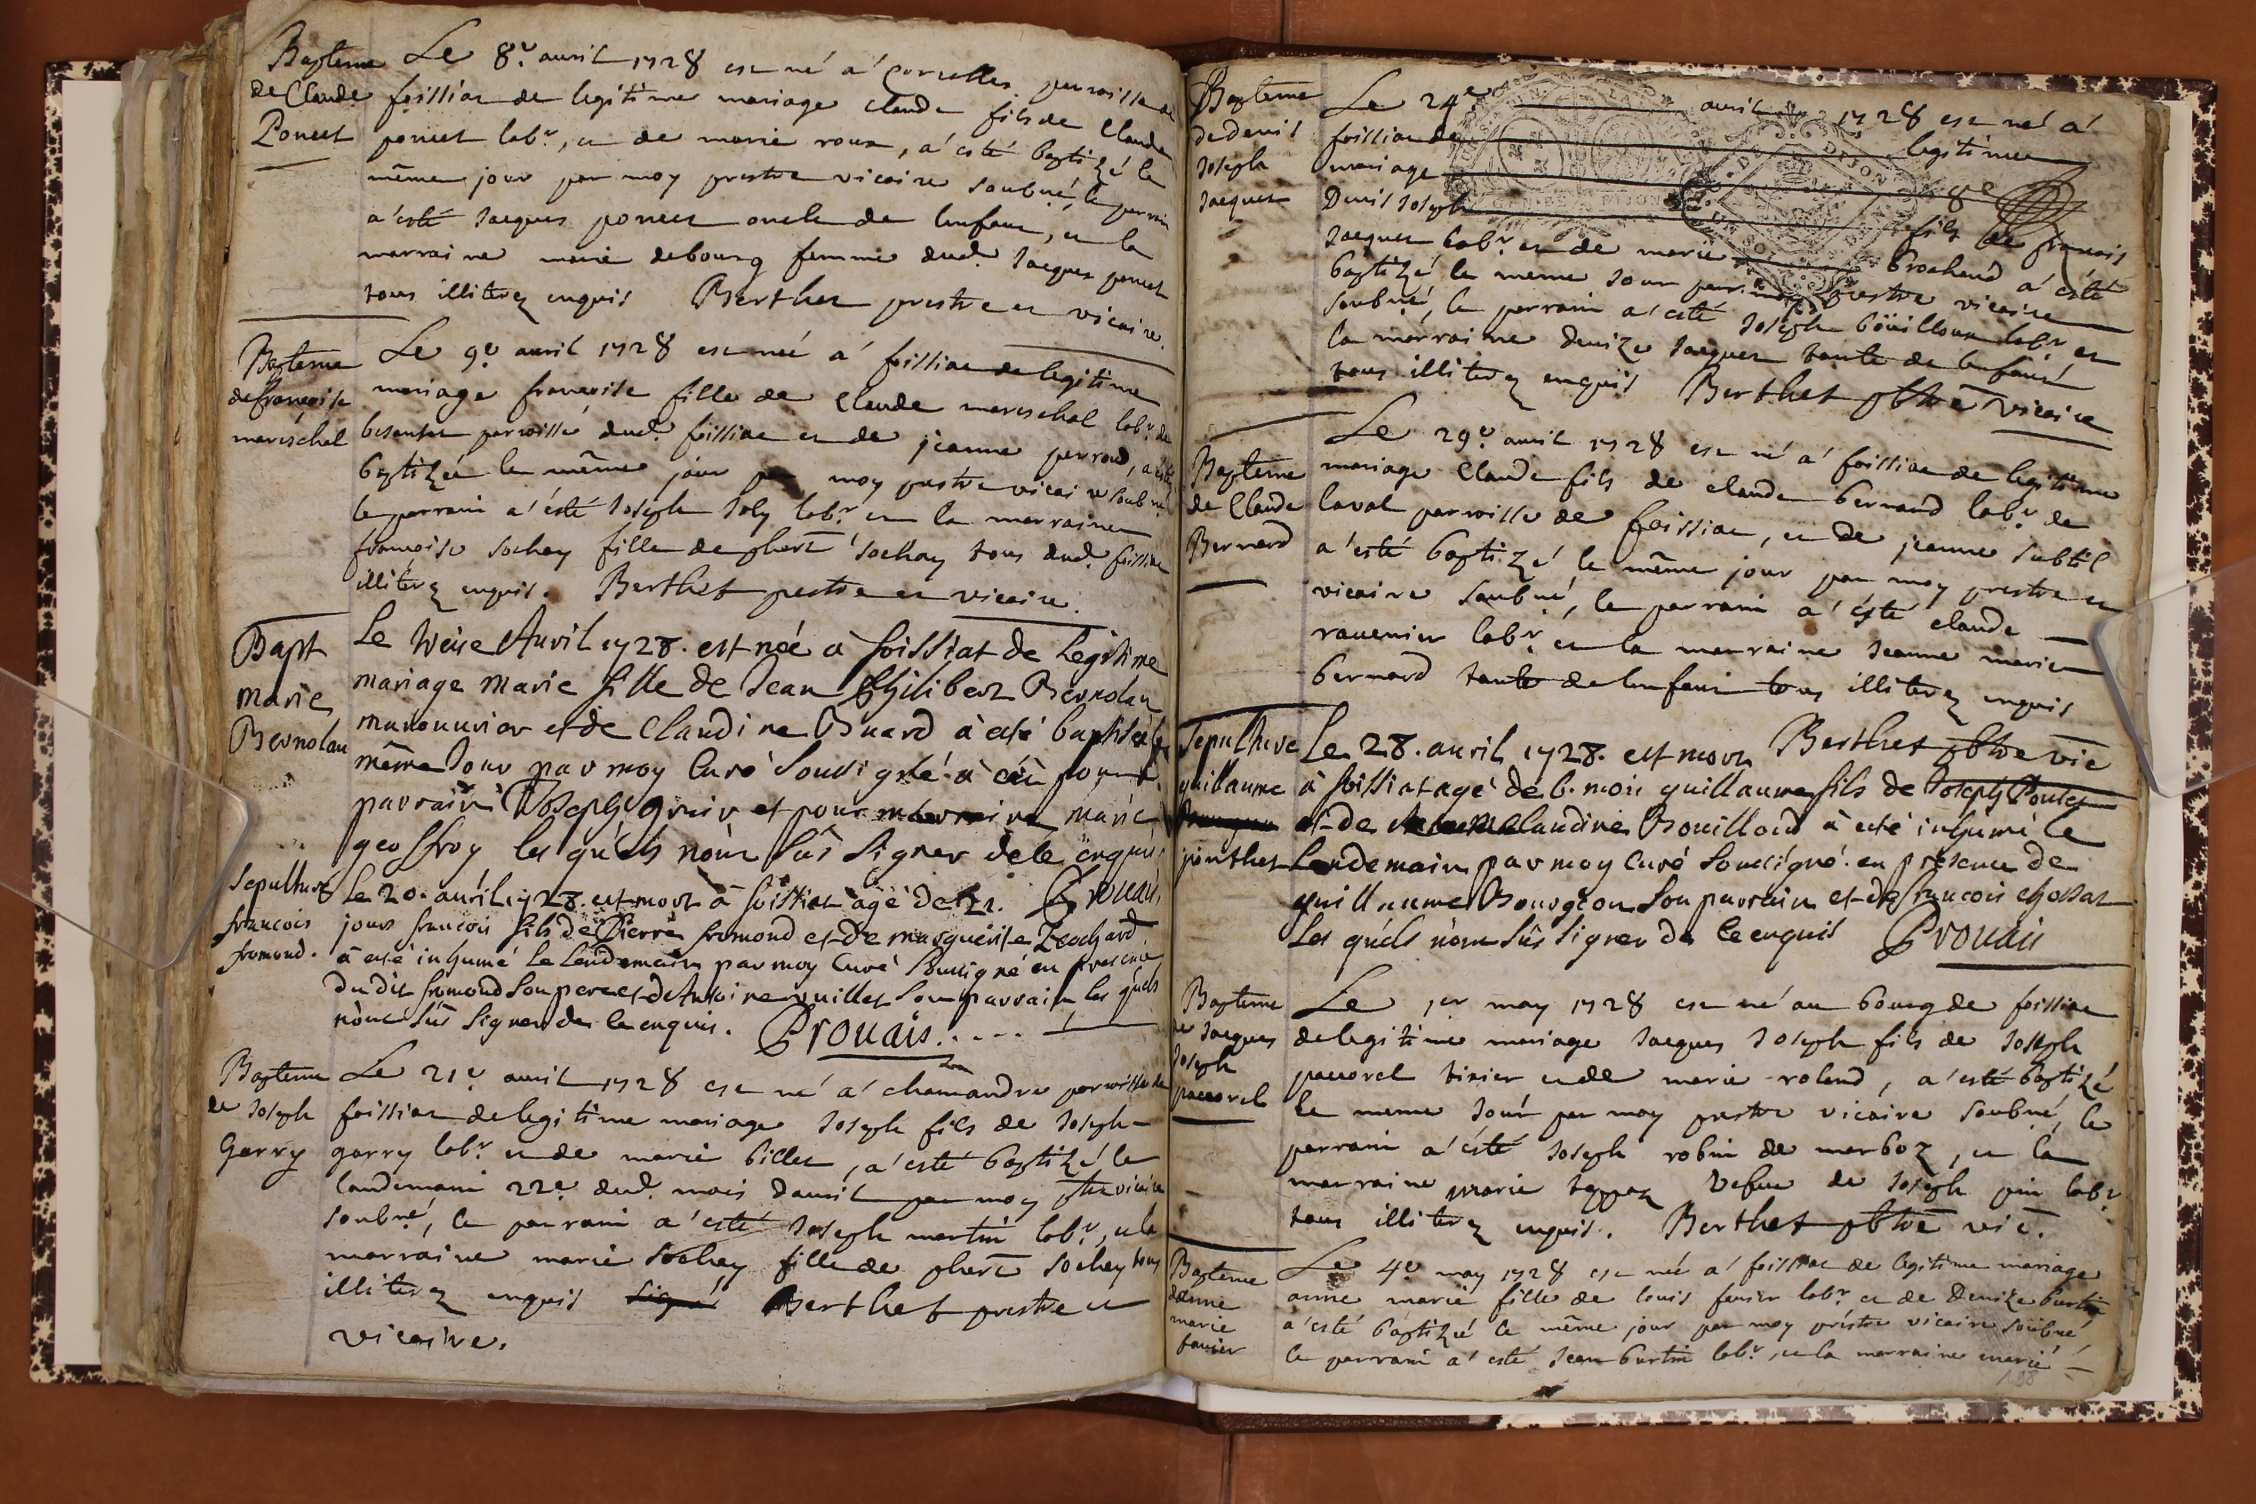 Bapteme
de Claude
Poncet
Le 8e. avril 1728 est né a' Corcelles parroisse de
foissiac de legitime mariage claude fils de claude
poncet labr., et de marie roux, a' esté baptizé le
même jour par moy prestre vicaire soubné, le parrain
a' esté Jacques poncet oncle de lenfant, et la
marraine marie debourg femme dud. Jacques poncet
tous illiterez enquis Berthet prestre et vicaire.
Bapteme
de françoise
mareschal
Le 9e avril 1728 est née a' foissiac de legitime
mariage françoise fille de claude mareschal labr. de
parroisse dud. foissiac et de jeanne perraud, a esté
baptizée le même jour par moy prestre vicaire soubné
le parrain a' esté Joseph Joly labr. et la marraine
françoise sochay fille de phert sochay tous dud. foissiac
illiterez enquis. Berthet prestre et vicaire.
Bapt
marie
Bernolan
Le treise Avril 1728. est née à foissiat de Legitime
mariage marie fille de Jean Philibert Bernolan
manouvrier et de Claudine Buard à esté baptisée le
même Jour par moy Curé Soussigné. à eu pour
parrain Joseph et pour marraine marie
geoffroy les quels n'ont sus signer de ce enquis,
Prouais
Sepulture
francois
fromond.
Le 20. avril 1728. est mort à foissiat âgé de 21.
jours francois fils de Pierre fromond et de marguerite Brochard
à esté inhumé le Lendemain par moy Curé Soussigné en presence
du dit fromond son pere et de Antoine vuillet son parrain les quels
n'ont sus signer de ce enquis. Prouais....
Bapteme
de Joseph
Garry
Le 21e. avril 1728 est né a' chamandre parroisse de
foissiac de legitime mariage Joseph fils de Joseph
garry labr. et de marie billet, a' esté baptizé le
landemain 22e. dud. mois davril par moy pbtre vicaire
soubné, le parrain a' esté Joseph martin labr., et la
marraine marie sochay fille de phert sochay tous
illiterez enquis signé Berthet prestre et
vicaire.
Bapteme
de denis
Joseph
Jacquet
Le 24e avril 1728 est né a'
foissiac de legitime
mariage
Denis Joseph fils de francois
Jacquet labr. et de marie brochand a' esté
baptizé le meme Jour par moy prestre vicaire
soubné, le parrain a' esté Joseph boüilloux labr. et
la marraine denize Jacquet tante de lenfant
tous illiterez enquis Berthet pbtre vicaire
Bapteme
de Claude
Bernard
Le 29e. avril 1728 est né a' foissiac de legitime
mariage Claude fils de claude bernard labr. de
laval parroisse de foissiac, et de jeanne subtil
a' esté baptizé le même jour par moy prestre et
vicaire soubné, le parrain a' esté claude
ravenier labr. et la marraine Jeanne marie
bernard tante de lenfant tous illiterez enquis
Berthet pbtre vic
Sepulture
guillaume
ponthet
Le 28. avril 1728. est mort
à foissiat agé de 6. mois guillaume fils de Joseph
et de Claudine Bouilloud à esté inhumé le
Lendemain par moy Curé Soussigné. en presence de
guillaume Bourgeon son parrain et de francois chossat
Les quels n'ont sus signer de ce enquis Prouais
Bapteme
de Jacques
Joseph
paccorel
Le 1er may 1728 est né au bourg de foissiac
de legitime mariage Jacques Joseph fils de Joseph
paccorel tixier et de marie roland, a' esté baptizé
le meme Jour par moy prestre vicaire soubné, le
parrain a' esté Joseph robin de marboz, et la
marraine marie vefve de Joseph pin labr.
tous illiterez enquis. Berthet pbtre vic.
Bapteme
danne
marie
favier
Le 4e may 1728 est née a' foissiac de legitime mariage
anne marie fille de louis favier labr. et de Denize burtin
a' esté baptizée le même jour par moy préstre vicaire soubné
le parrain a' esté Jean burtin labr., et la marraine marie
198